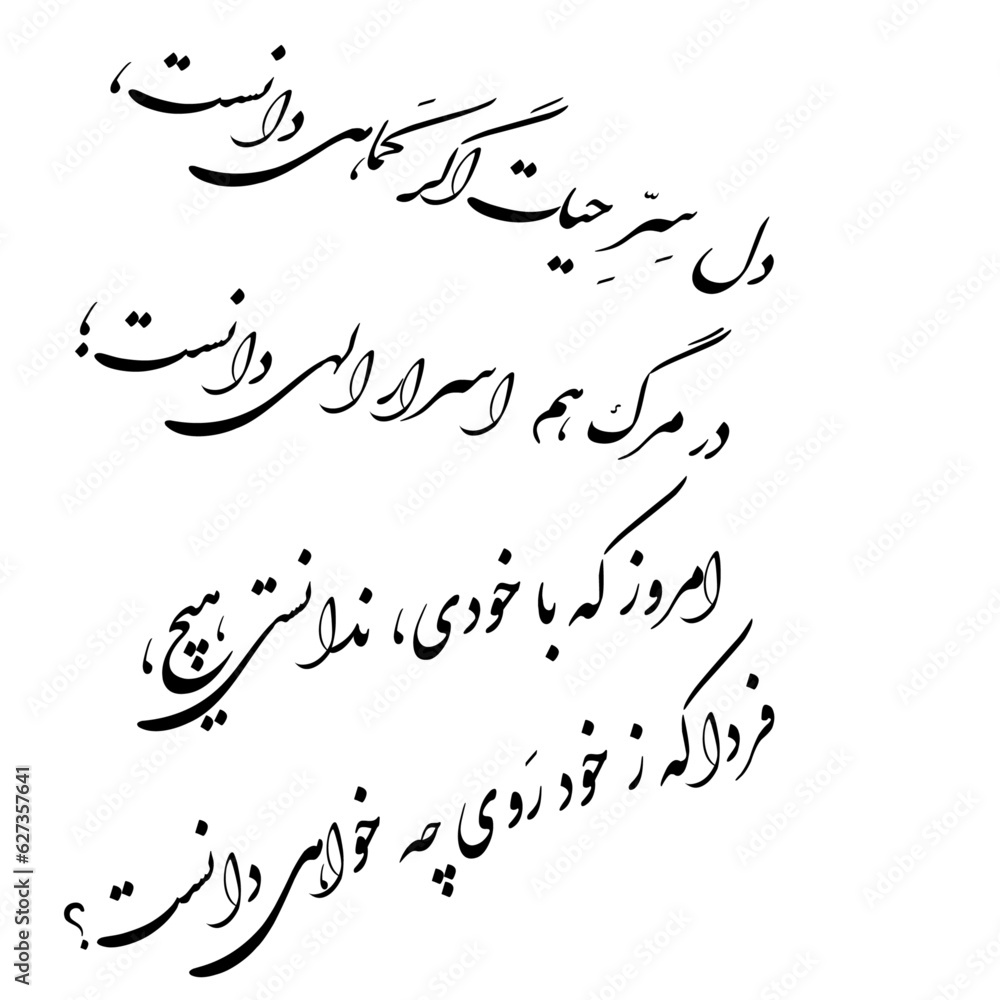 دل سِرِّ حیات اگر کَماهی دانست،
در مرگ هم اسرار الهی دانست؛
امروز که با خودی، ندانستی هیچ،
فردا که ز خود رَوی چه خواهی دانست؟
Adobe Stock | #627357641